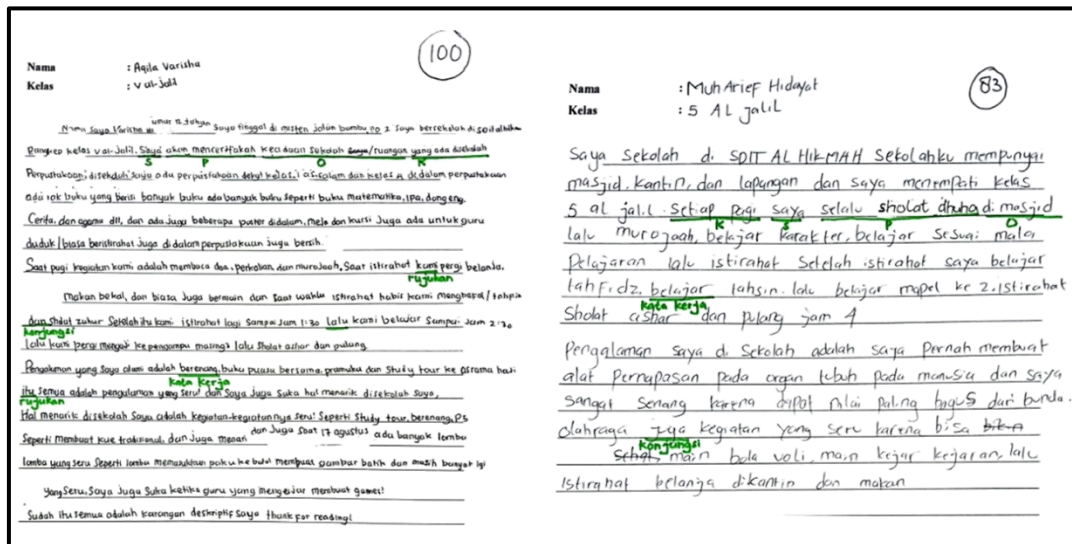 100
Nama : Aqila Varisha
Kelas : V al-Jalil
umur 11 tahun
Nama Saya Varisha Saya tinggal di misten jalan bambu no 2 Saya bersekolah di sdit alhikmah
kelas V al-Jalil. Saya akan menceritakan keadaan sekolah /ruangan yang ada disekolah
S P O K
Perpustakaan: disekolah saya ada perpustakaan dekat kelas dan kelas A didalam perpustakaan
ada rak buku yang berisi banyak buku ada banyak buku seperti buku matematika, IPA, dongeng.
Cerita, dan agama dll, dan ada Juga beberapa poster didalam, meja dan kursi Juga ada untuk guru
duduk / biasa beristirahat Juga di dalam perpustakaan Juga bersih.
Saat pagi kegiatan kami adalah membaca doa, dan murojaah, Saat istirahat kami pergi belanja,
rujukan
makan bekal, dan biasa Juga bermain dan saat waktu istirahat habis kami menghafal / tahfiz
dan Sholat zuhur Setelah itu kami istirahat lagi Sampai Jam 1:30 lalu kami belajar Sampai Jam 2:30
konjungsi
lalu kami pergi mengaji ke pengampu masing2 lalu Sholat ashar dan pulang
Pengalaman yang Saya alami adalah berenang, buka puasa bersama, pramuka dan Study tour ke asrama haji
kata kerja
itu semua adalah pengalaman yang Seru! dan Saya Juga Suka hal menarik disekolah Saya,
rujukan
Hal menarik disekolah Saya adalah kegiatan-kegiatannya Seru! Seperti Study tour, berenang, P5
Seperti membuat kue tradisional, dan Juga menari dan Juga Saat 17 agustus ada banyak lomba
lomba yang seru Seperti lomba memasukkan paku ke botol membuat gambar batik dan masih banyak lgi
Yang Seru, Saya Juga Suka ketika guru yang mengajar membuat games!
Sudah itu semua adalah karangan deskriptif Saya thank for reading!
83
Nama : Muh Arief Hidayat
Kelas : 5 AL jaliL
Saya Sekolah di SDIT AL HIKMAH Sekolahku mempunyai
masjid, kantin, dan lapangan dan saya menempati kelas
5 al jalil. Setiap pagi saya selalu sholat dhuha di masjid
K S P O
lalu murojaah, belajar karakter, belajar sesuai mata
Pelajaran lalu istirahat Setelah istirahat saya belajar
tahfidz, belajar tahsin. lalu belajar mapel ke 2. Istirahat
kata kerja
Sholat ashar dan pulang jam 4
Pengalaman saya di Sekolah adalah saya Pernah membuat
alat Pernapasan pada organ tubuh pada manusia dan saya
sangat Senang karena dapat nilai Paling bagus dari bunda.
olahraga juga kegiatan yang seru karena bisa
konjungsi
main bola voli, main kejar kejaran, lalu
istirahat belanja dikantin dan makan